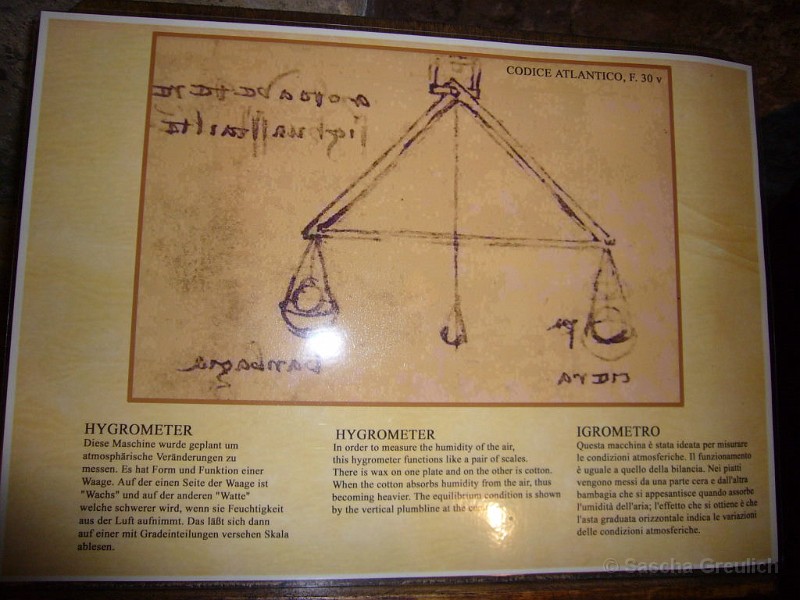 CODICE ATLANTICO, F. 30 v
HYGROMETER
Diese Maschine wurde geplant um
atmosphärische Veränderungen zu
messen. Es hat Form und Funktion einer
Waage. Auf der einen Seite der Waage ist
"Wachs" und auf der anderen "Watte"
welche schwerer wird, wenn sie Feuchtigkeit
aus der Luft aufnimmt. Das läßt sich dann
auf einer mit Gradeinteilungen versehen Skala
ablesen.
HYGROMETER
In order to measure the humidity of the air,
this hygrometer functions like a pair of scales.
There is wax on one plate and on the other is cotton.
When the cotton absorbs humidity from the air, thus
becoming heavier. The equilibrium condition is shown
by the vertical plumbline at the
IGROMETRO
Questa macchina è stata ideata per misurare
le condizioni atmosferiche. Il funzionamento
è uguale a quello della bilancia. Nei piatti
vengono messi da una parte cera e dall'altra
bambagia che si appesantisce quando assorbe
l'umidità dell'aria; l'effetto che si ottiene è che
l'asta graduata orizzontale indica le variazioni
delle condizioni atmosferiche.
© Sascha Greulich